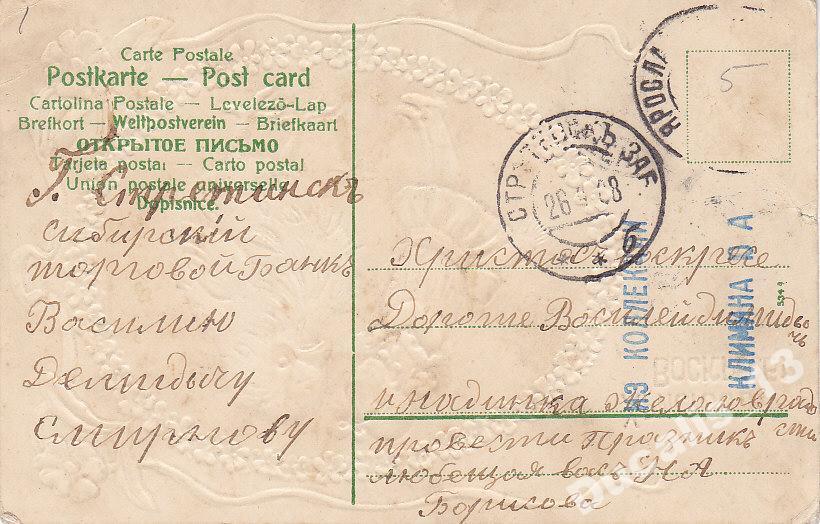 1
Carte Postale
Postkarte — Post card
Cartolina Postale — Levelező-Lap
Brefkort — Weltpostverein — Briefkaart
ОТКРЫТОЕ ПИСЬМО
Tarjeta postal — Carto postal
Union postale universelle
Dopisnice.
Г. Стретинскъ
Сибирский
торговой Банкъ
Василию
Демидычу
Смирнову
ЯРОСЛА
5
СТРѢТЕНСКЪ ЗАБ.
26 08
* б *
Христос Воскресе
Дороıие
и надинка желаю
провести Празникъ
любещая васъ Н А
Борисова
ИЗ КОЛЛЕКЦИИ
КЛИМИНА В А
5349